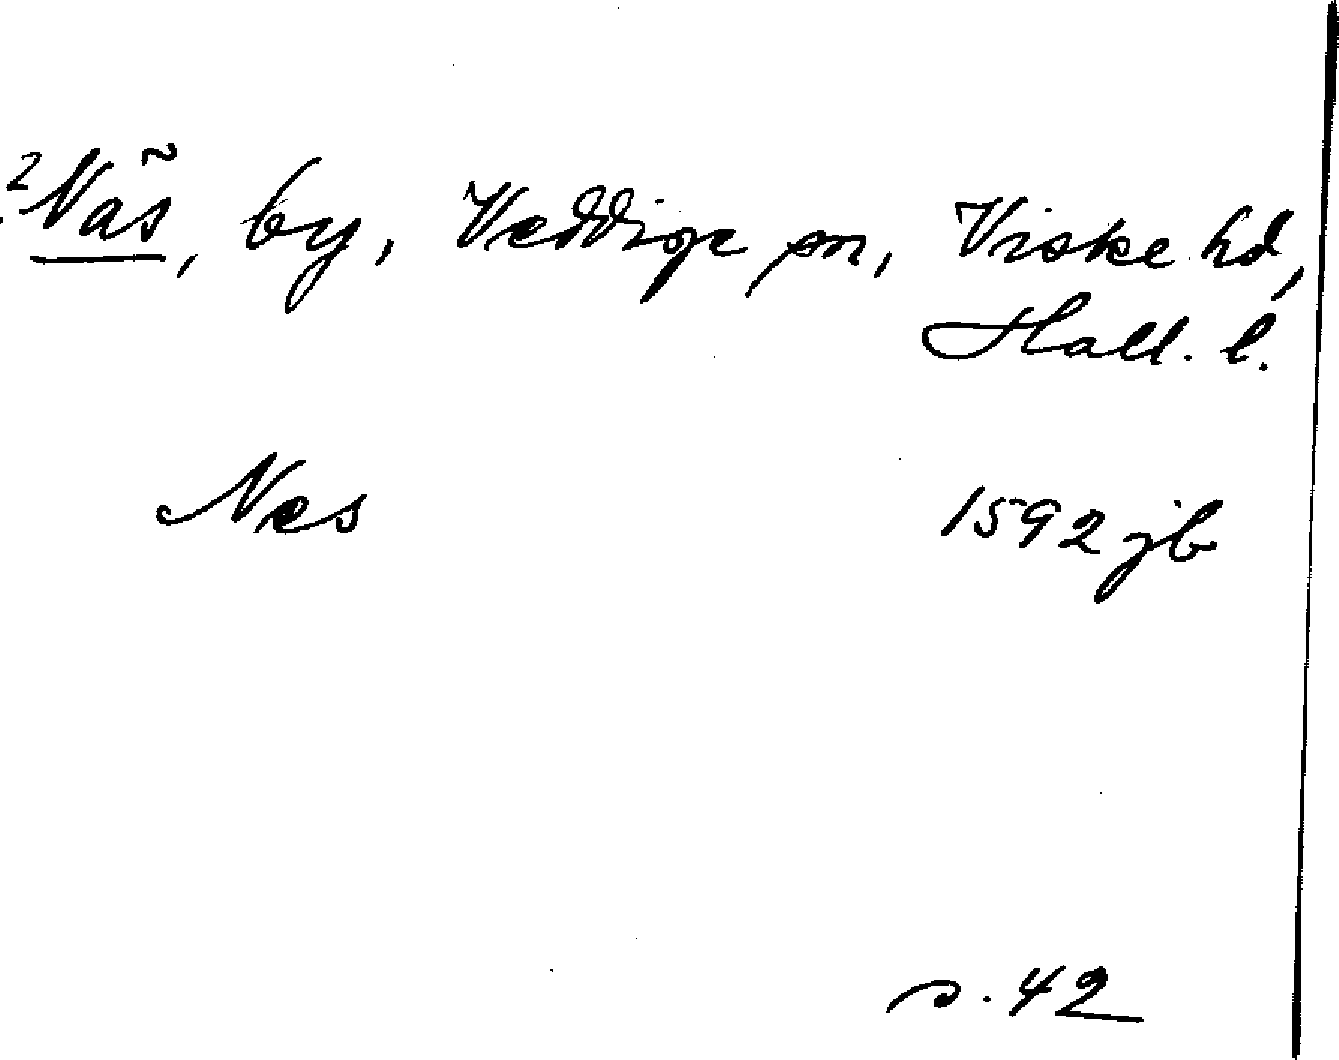 ²Näs, by, Veddige sn, Viske hd,
Hall. l.
Nes 1592 jb
s. 42